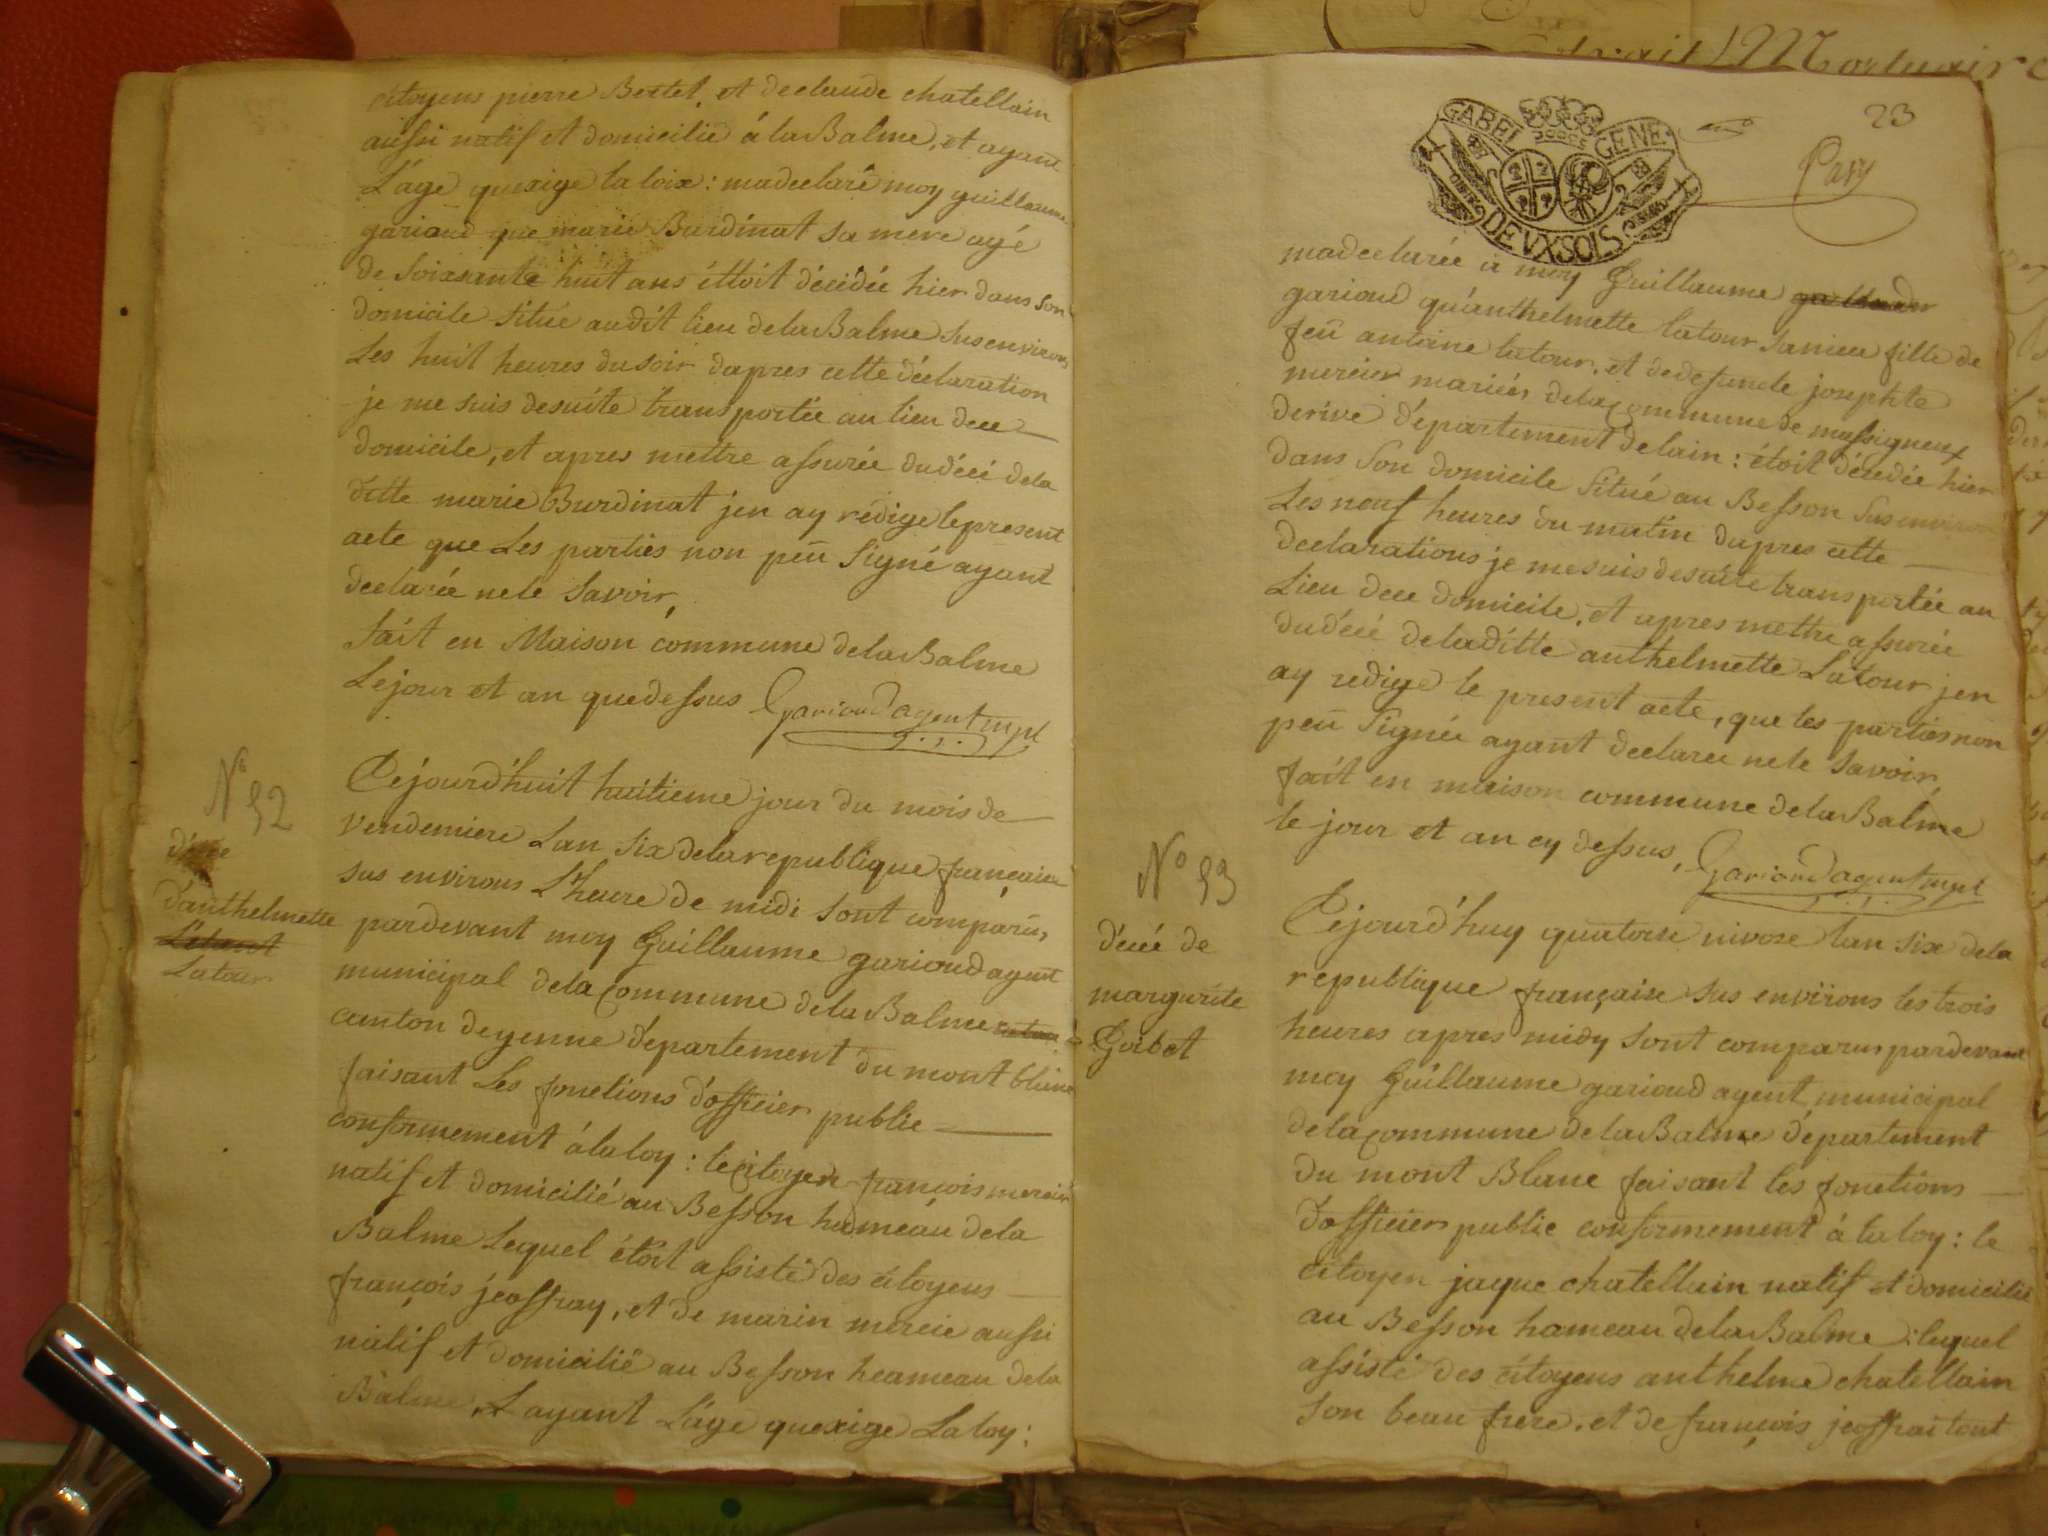 citoyens pierre Bertet, et declaude chatellain
aussi natif et domicilie á la Balme, et ayant
L'age quexige la loix : madeclaré moy guillaume
gariaud que marie Burdinat sa mere agé
de soixsante huit ans éttoit décédée hier dans son
domicile situé audit lieu delaBalme sus environs
Les huit heures dusoir dapres cette déclaration
je me suis desuite transportée au lieu dece
domicile, et apres mettre assurée dudécé dela
ditte marie Burdinat jen ay rédige lepresent
acte que Les parties non peü signé ayant
declarée nele savoir,
fait en Maison commune delaBalme
Lejour et an quedessus Garioud agent mpl
N° 52
décé
d'anthelmette
Latour
Cejourd'huit huitieme jour du mois de
vendemiere Lan six dela republique française
sus environs L'heure de midi sont comparus
pardevant moy Guillaume garioud agent
municipal dela Commune delaBalme
canton deyenne département du mont blanc
faisant Les fonctions d'officier public
conformement álaloy : lecitoyen françois mercier
natif et domicilié au Besson hameau dela
Balme Lequel étoit assisté des citoyens
françois jeoffray, et de marin mercie aussi
natif et domicilié au Besson heameau dela
Balme, L ayant L'age quexige Laloy :
GABEL GENE:
DEVXSOLS
23
madeclarée a moy Guillaume
garioud qu'anthelmette latour saniece fille de
feü antoine latour, et dedefuncte josephte
mercier mariés, dela Commune de massigneux
derive département delain : étoit décedée hier
dans son domicile situé au Besson sus environ
Les neuf heures du matin dapres cette
declarations je mesuis desuite transportée au
Lieu dece domicile, et apres mettre assurée
dudécé deladitte anthelmette Latour jen
ay redige le present acte, que les parties non
peü signée ayant declarée nele savoir,
fait en maison commune delaBalme
le jour et an cy dessus, Garioud agent mpl
N° 53
décé de
margurite
Goibet
Cejourd'huy quatorse nivose lan six dela
republique française sus environs les trois
heures apres midy sont comparus pardevant
moy Guillaume garioud agent municipal
delacommune delaBalme département
du mont Blanc faisant les fonctions
d'officier public conformement á laloy : le
citoyen jaque chatellain natif et domicilié
au Besson hameau delaBalme : lequel
assisté des citoyens anthelme chatellain
son beau frere, et de françois jeoffrai tout